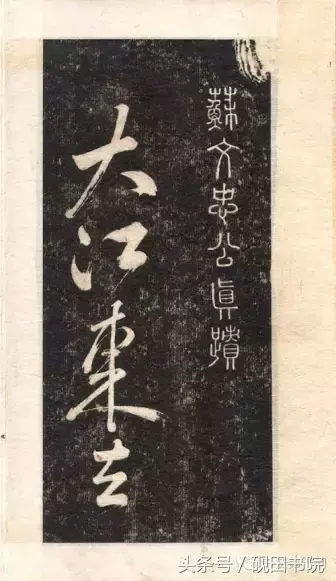 蘇文忠公真蹟
大江東去
头条号／砚田书院